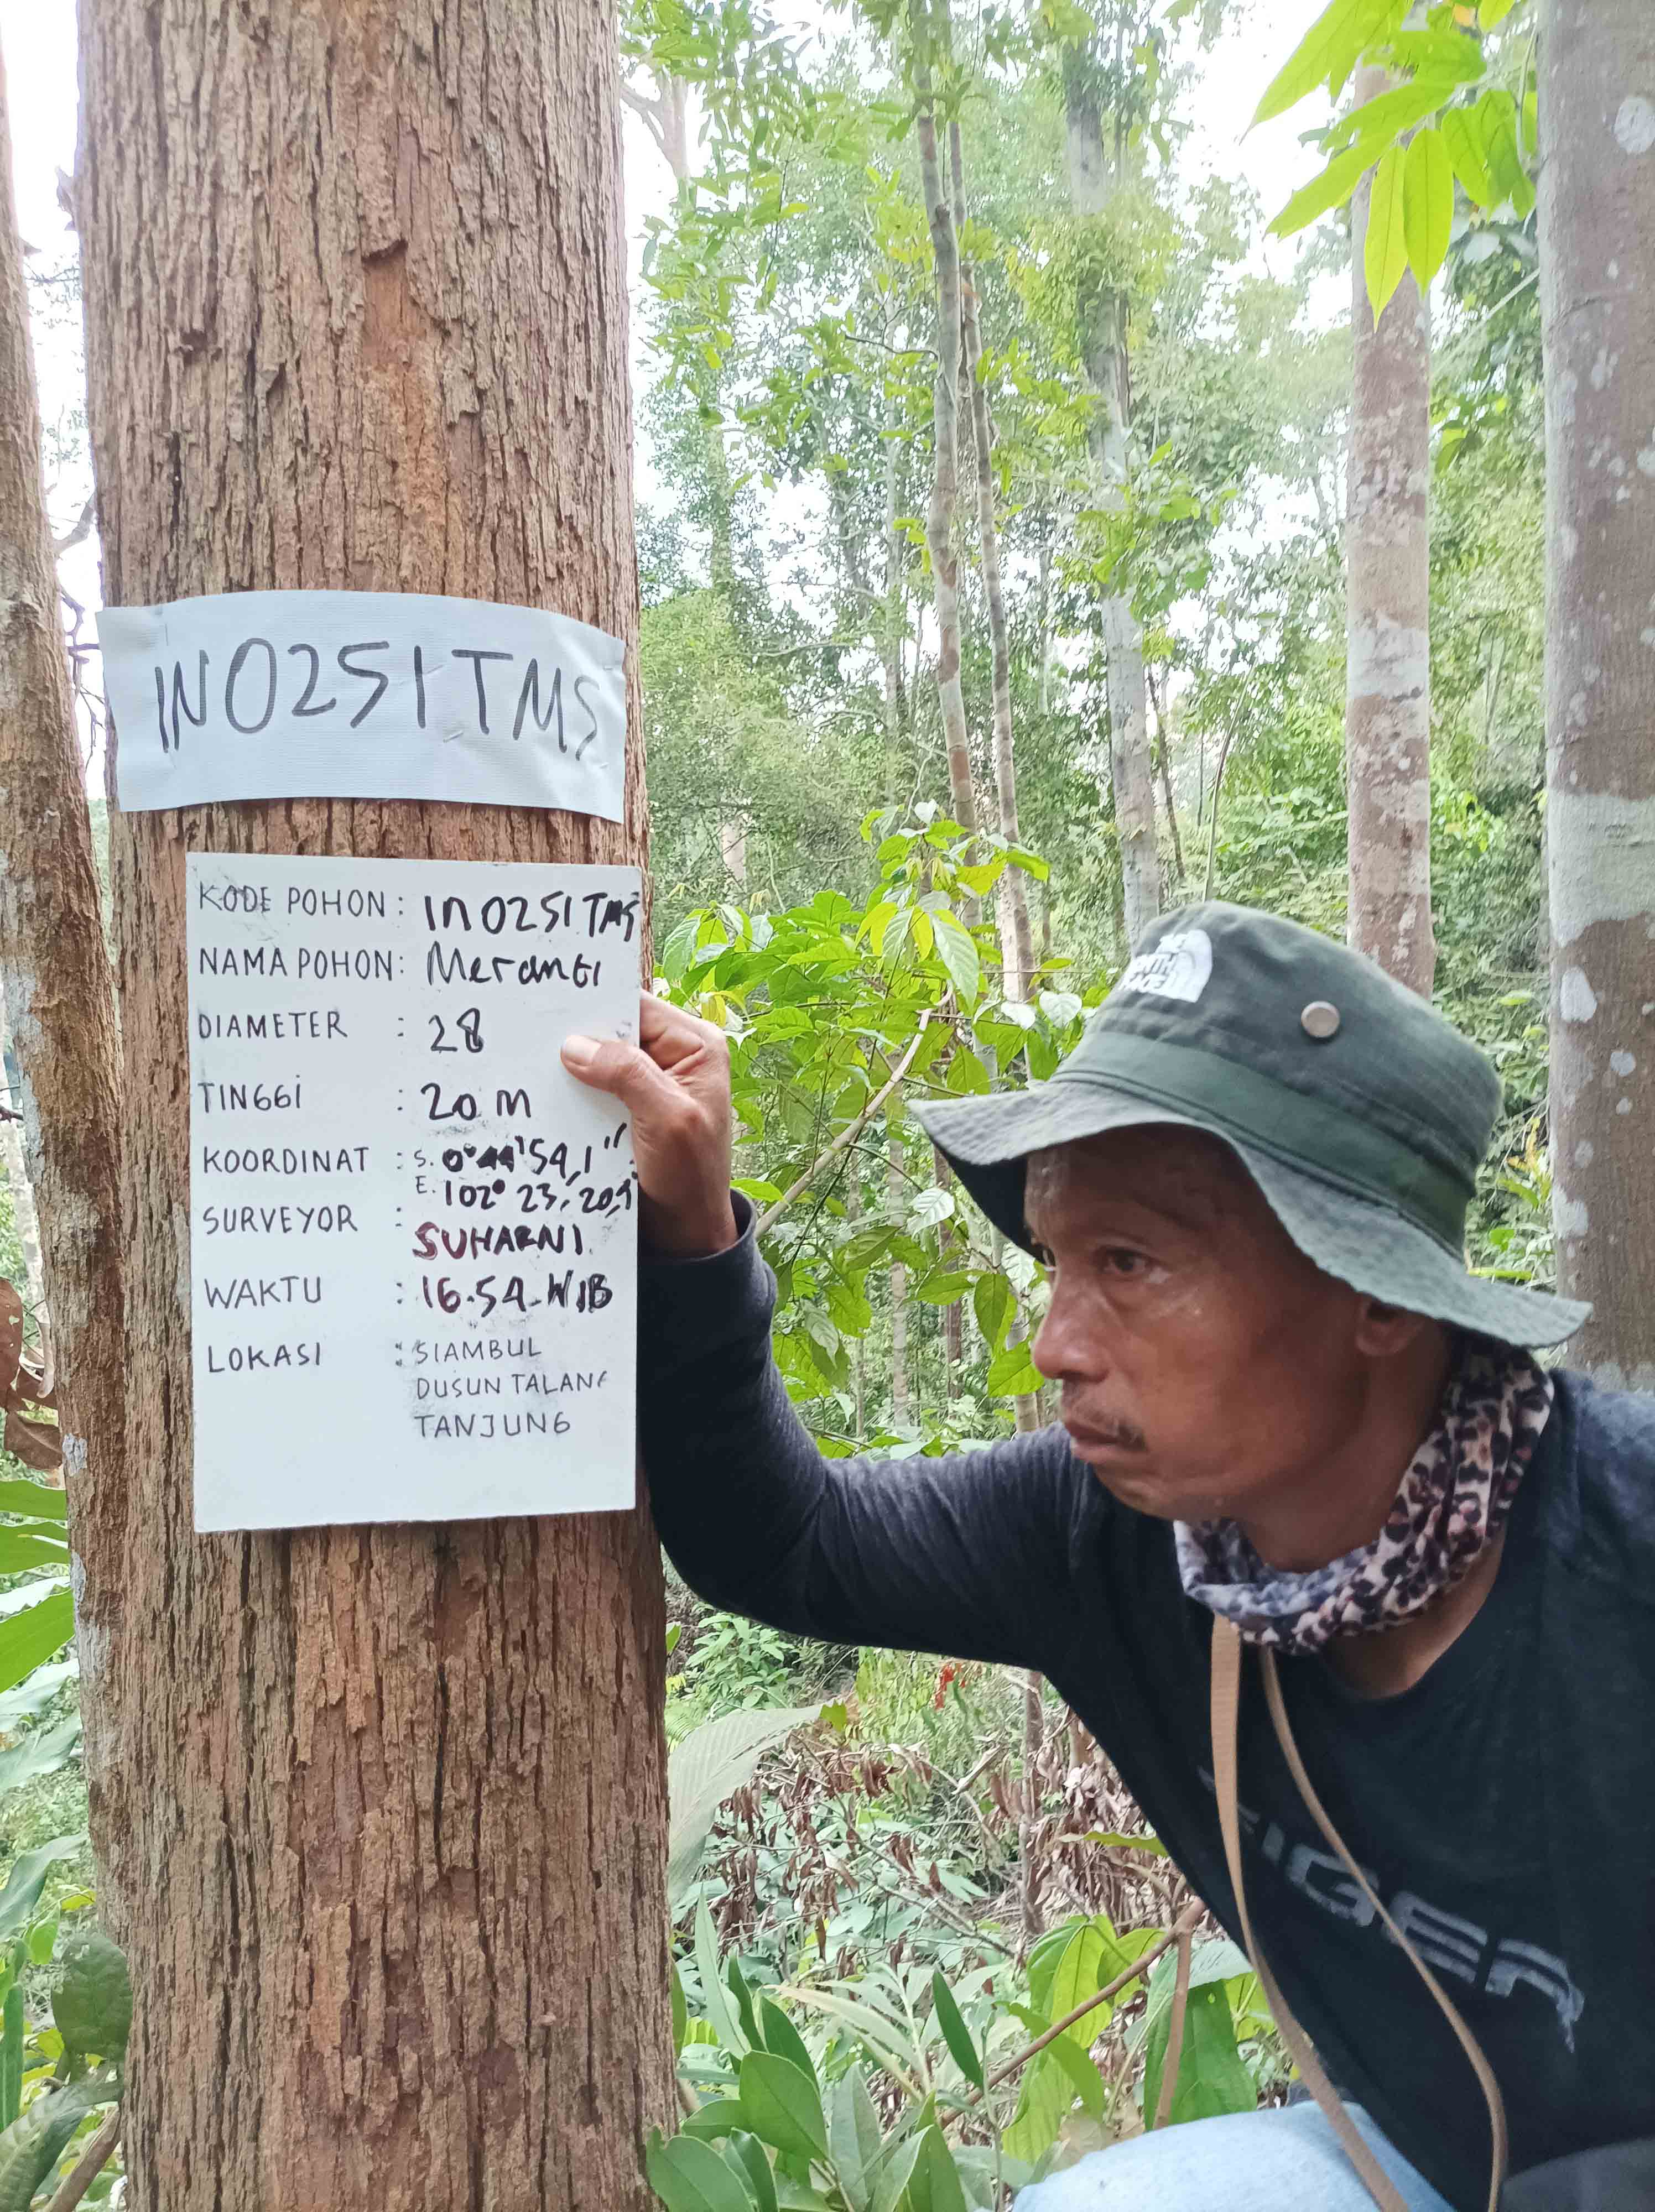 IN0251TMS
KODE POHON : IN0251TMS
NAMA POHON : Meranti
DIAMETER : 28
TINGGI : 20 M
KOORDINAT : S. 0°44'54,1"
E. 102° 23, 20,9"
SURVEYOR : SUHARNI
WAKTU : 16.54 WIB
LOKASI : SIAMBUL
DUSUN TALANG
TANJUNG
THE
NORTH
FACE
IGER